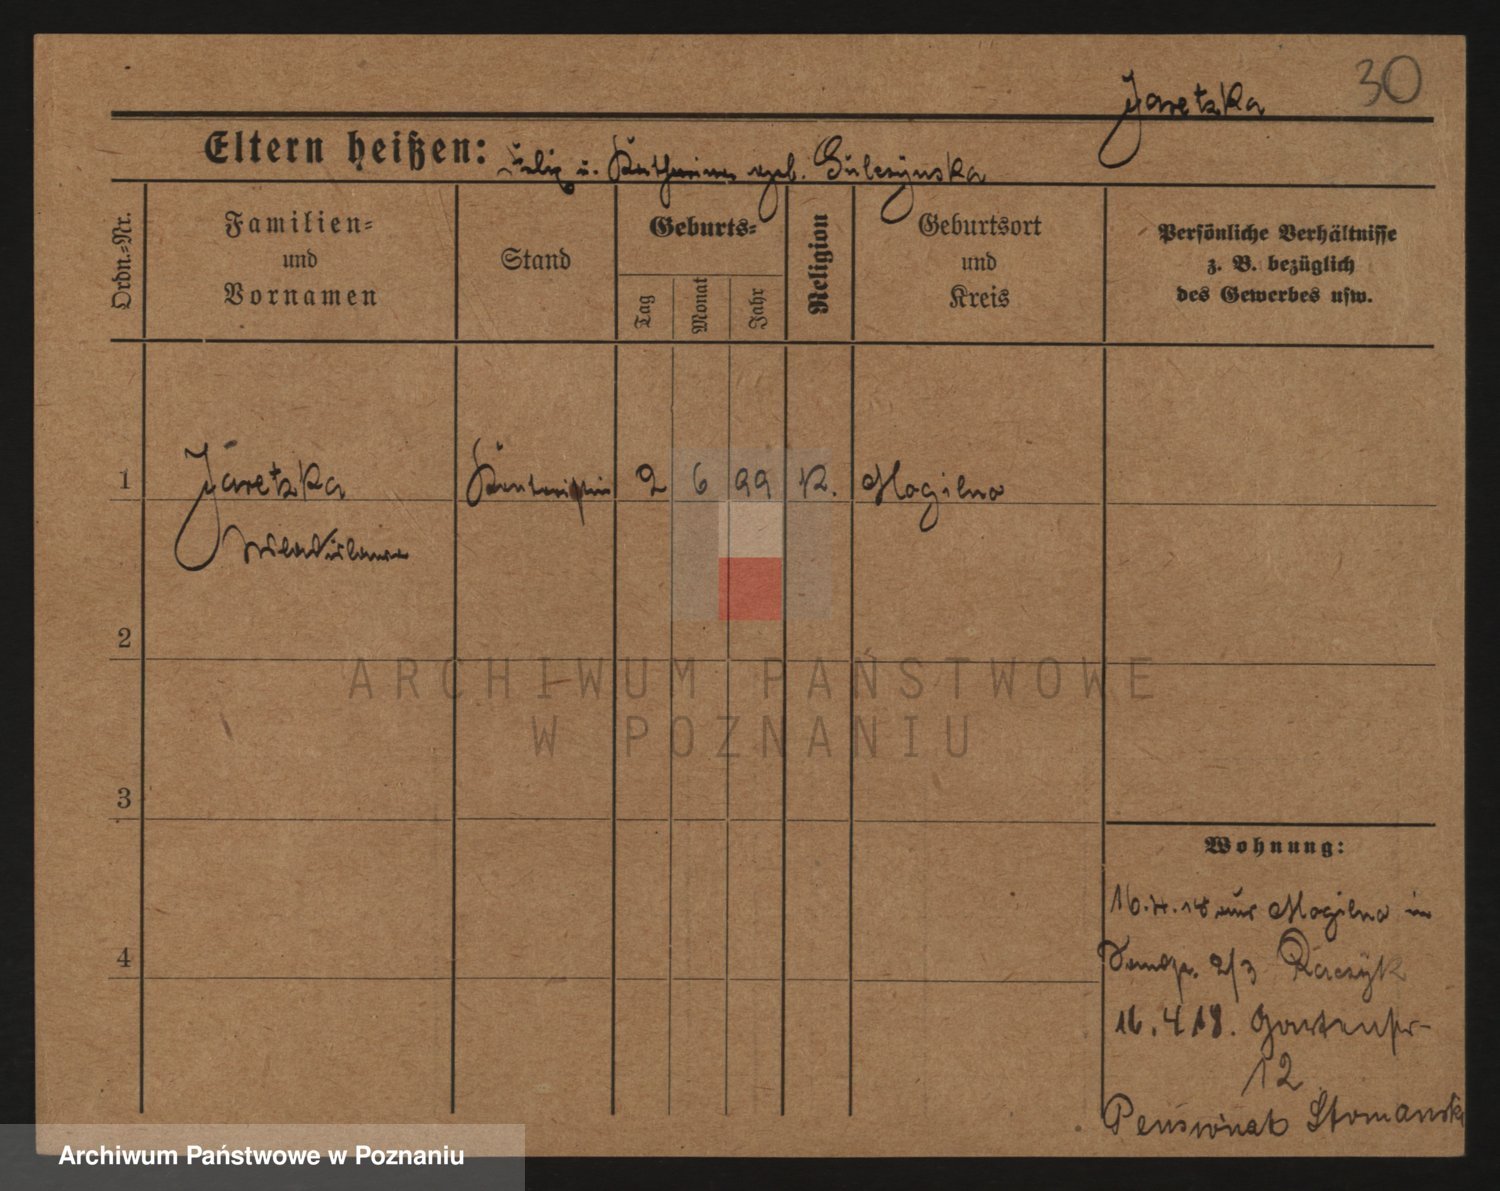 30
Jaretzka
Eltern heißen: Felix u. Katharina geb. Gulczynska
Ordn.-Nr.
Familien-
und
Vornamen
Stand
Geburts-
Tag
Monat
Jahr
Religion
Geburtsort
und
Kreis
Persönliche Verhältnisse
z. B. bezüglich
des Gewerbes usw.
1
Jaretzka
2 6 99 K. Mogilno
Wladislawa
2
ARCHIWUM PAŃSTWOWE
W POZNANIU
3
Wohnung:
16.4.18 aus Mogilno in
2/3 Raczyk
4
16.4.18. Gartenstr
12
Pensionat Slomanski
Archiwum Państwowe w Poznaniu